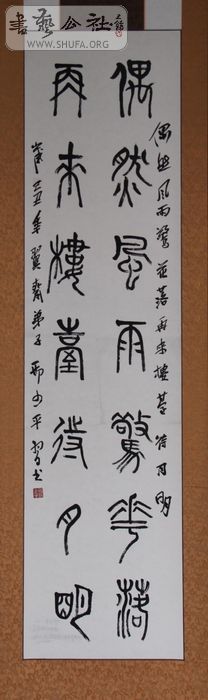 書藝公社
WWW.SHUFA.ORG
偶然风雨驚花落再來樓臺待月明
偶然風雨驚華落
再來樓臺待月明
歲己丑年翼齋弟子邢少平習书